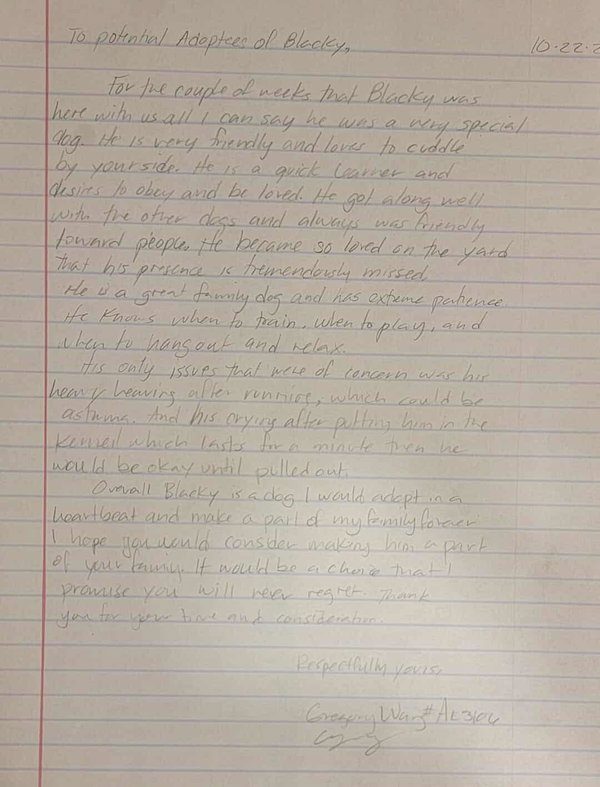 To potential Adoptees of Blacky,
10.22.2
For the couple of weeks that Blacky was
here with us all I can say he was a very special
dog. He is very friendly and loves to cuddle
by your side. He is a quick learner and
desires to obey and be loved. He got along well
with the other dogs and always was friendly
toward people. He became so loved on the yard
that his presence is tremendously missed.
He is a great family dog and has extreme patience.
He knows when to train, when to play, and
when to hangout and relax.
His only issues that were of concern was his
heavy heaving after running, which could be
astuma. And his crying after putting him in the
kennell which lasts for a minute then he
would be okay until pulled out.
Overall Blacky is a dog I would adopt in a
heartbeat and make a part of my family forever
I hope you would consider making him a part
of your family. It would be a choice that I
promise you will never regret. Thank
you for your time and consideration.
Respectfully yours,
Gregory #